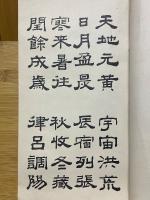 天地元黃宇宙洪荒
日月盈昃辰宿列張
寒來暑往秋收冬藏
閏餘成歲律呂調陽